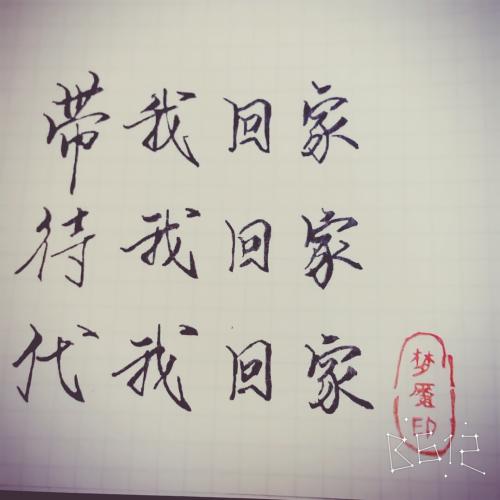 带我回家
待我回家
代我回家
梦魇印
B612